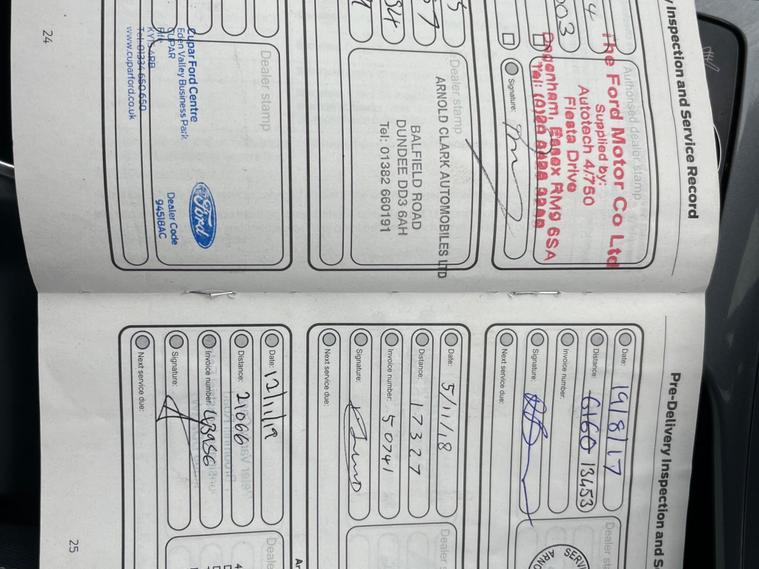 Inspection and Service Record
Authorised dealer stamp
The Ford Motor Co Ltd
Supplied by:
Autotech 4/750
Fiesta Drive
Dagenham, Essex RM9 6SA
Signature:
Dealer stamp
ARNOLD CLARK AUTOMOBILES LTD
BALFIELD ROAD
DUNDEE DD3 6AH
Tel: 01382 660191
Dealer stamp
Ford
Dealer Code
94518AC
Cupar Ford Centre
Eden Valley Business Park
CUPAR
Fife
Tel: 01334 650 650
www.cuparford.co.uk
24
Pre-Delivery Inspection and S
Date: 19/8/17
Distance: 13453
Invoice number:
Signature:
Next service due:
Dealer st
SERVI
ARNO
Date: 5/11/18
Distance: 17327
Invoice number: 50741
Signature:
Next service due:
Dealer st
Date: 12/11/19
Distance: 21066
Invoice number: 63956
Signature:
Next service due:
Deale
25